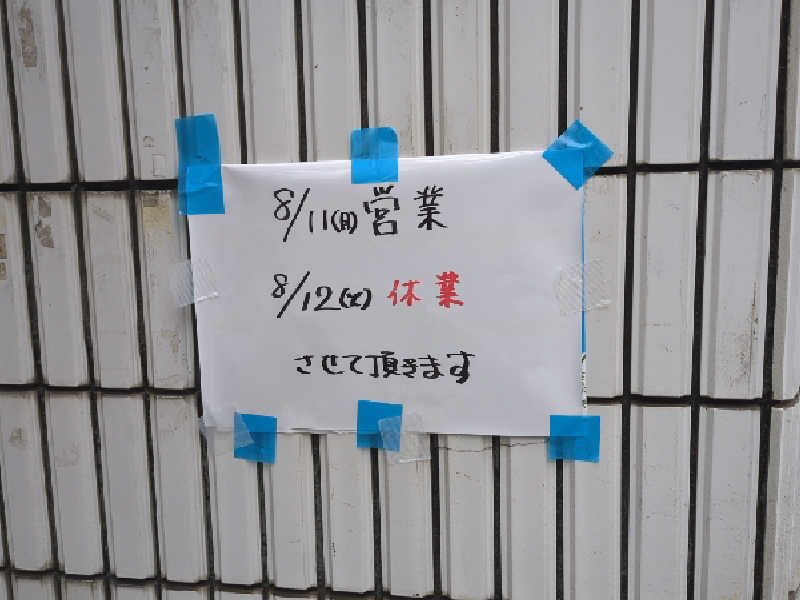 8/11(月)営業
8/12(火)休業
させて頂きます